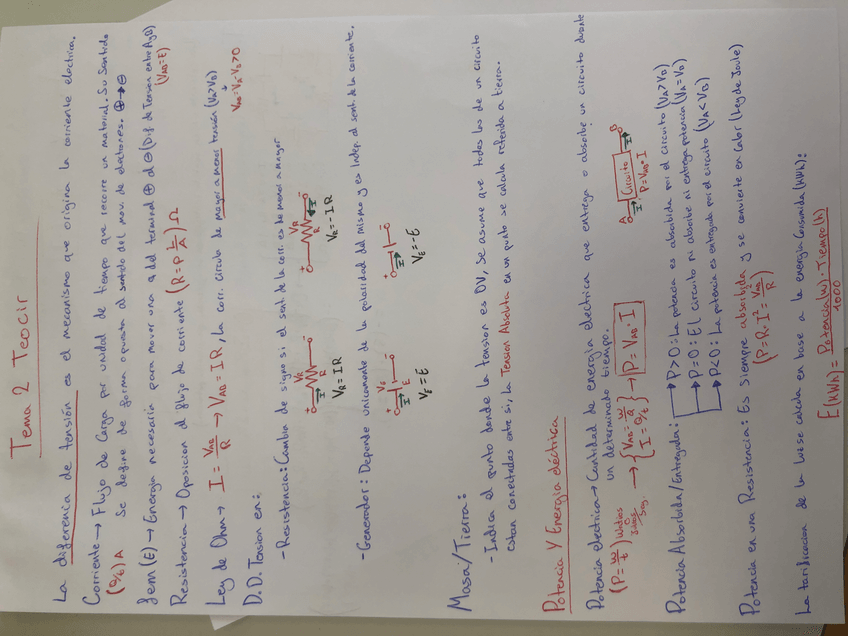 Tema 2 Teocir
La diferencia de tensión es el mecanismo que origina la corriente electrica.
Corriente → Flujo de Carga por unidad de tiempo que recorre un material. Su sentido
(Q/t) A Se define de forma opuesta al sentido del movi. de electrones. ⊕→⊖
fem (E) → Energia necesaria para mover una q del terminal ⊕ al ⊖ (Dif. de Tension entre A y B)
(VAB=E)
Resistencia → Oposicion al flujo de corriente (R = ρ L/A) Ω
Ley de Ohm → I = VAB/R → VAB = IR, la corr. circula de mayor a menor tensión (VA>VB)
VAB=VA-VB>0
D.D. Tension en:
- Resistencia: Cambia de signo si el sent. de la corr. es de menor a mayor
+ VR - I R
VR = IR
+ VR - R I
VR = -IR
- Generador: Depende unicamente de la polaridad del mismo y es indep. al sent. de la corriente.
+ VE - I E
VE = E
+ - I
VE = -E
Masa/Tierra:
- Indica el punto donde la tension es 0V, se asume que todas las de un circuito
estan conectadas entre si, la Tension Absoluta en un punto se calcula referida a tierra.
Potencia Y Energia eléctrica
Potencia electrica → Cantidad de energia electrica que entrega o absorbe un circuito durante
un determinado tiempo.
(P = W/t) Watios o Julios/Seg. → { VAB = W/Q I = Q/t } → P = VAB · I
A I Circuito I B
P = VAB · I
Potencia Absorbida/Entregada: → P>0: La potencia es absorbida por el circuito (VA>VB)
→ P=0: El circuito ni absorbe ni entrega potencia (VA=VB)
→ P<0: La potencia es entregada por el circuito (VA<VB)
Potencia en una Resistencia: Es Siempre absorbida y se convierte en Calor (Ley de Joule)
(P = R · I² = V²AB/R)
La tarificacion de la luz se calcula en base a la energia Consumida (kWh):
E(kWh) = Potencia(W) · Tiempo(h) / 1000